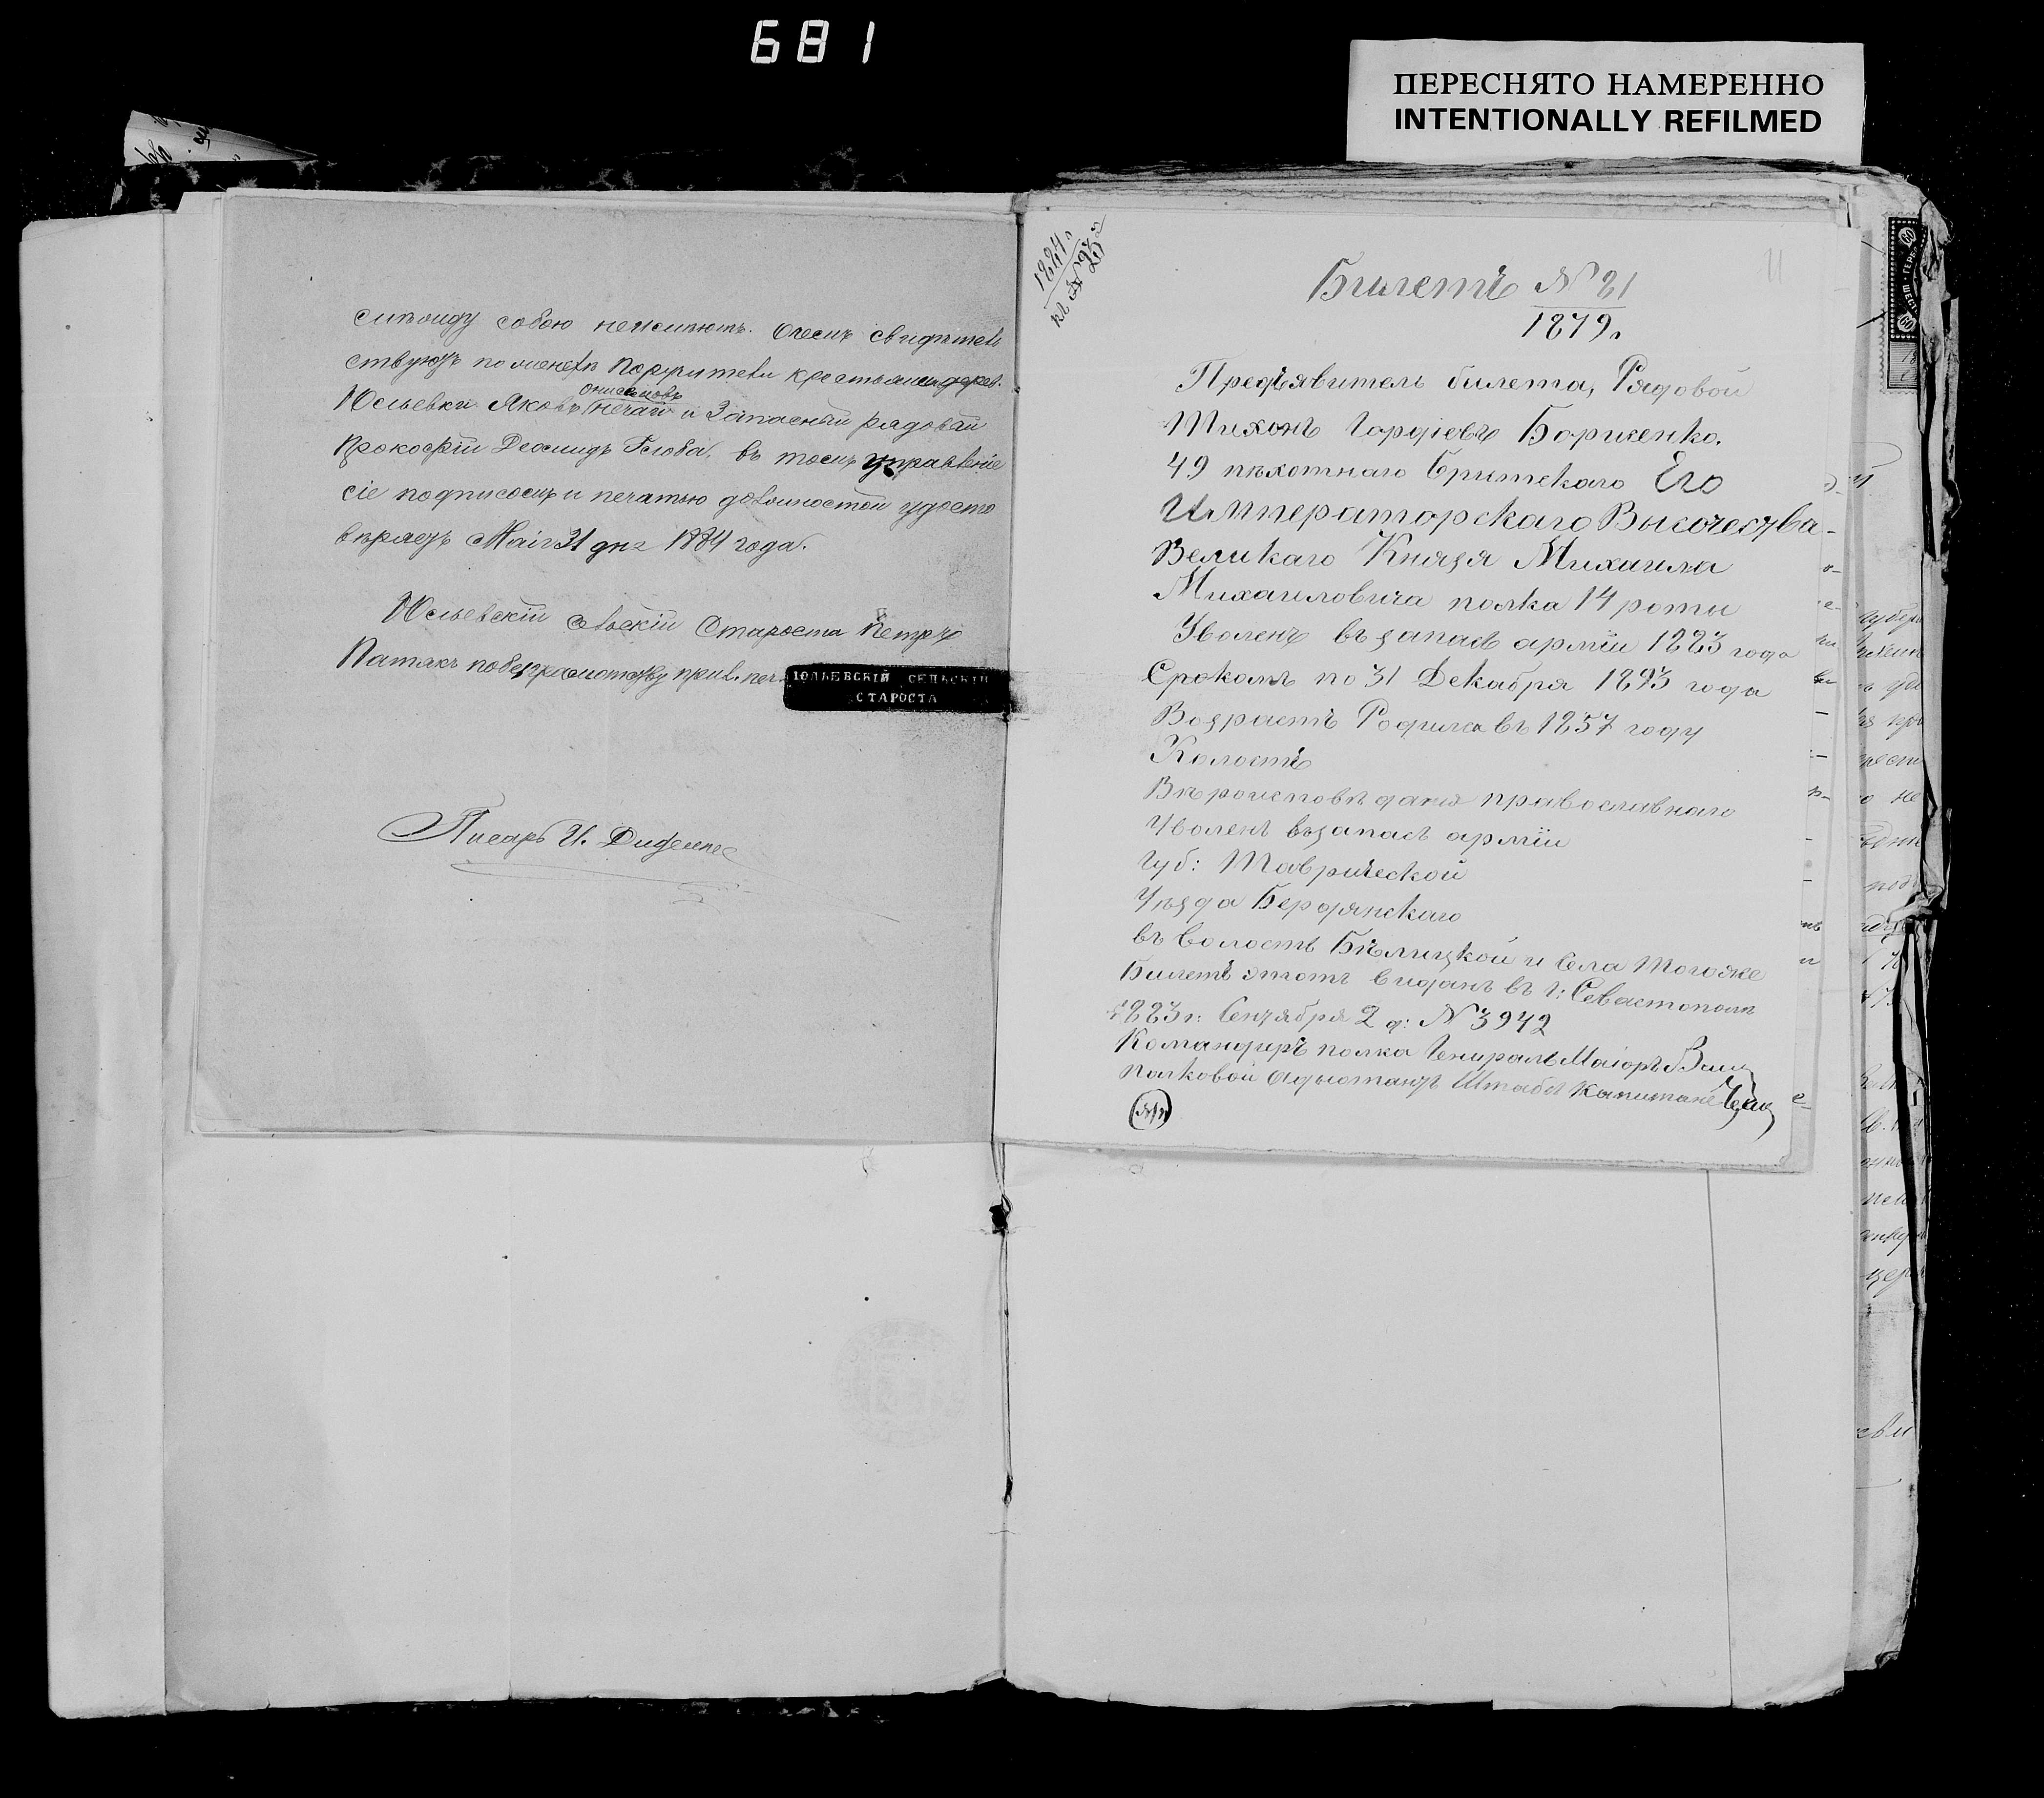 681
ПЕРЕСНЯТО НАМЕРЕННО
INTENTIONALLY REFILMED
собою неимѣютъ. Очемъ свидѣтель
ствуютъ поручители
Юльевки Яковъ Нечай и Запасный рядовой
Прокофій Деомидъ Глоба, въ томъ управленіе
сіе подписомъ и печатью должностной удосто
вѣряетъ Маія 31 дня 1884 года.
Юльевскій Сельскій Староста Петръ
Патякъ
ЮЛЬЕВСКІЙ СЕЛЬСКІЙ
СТАРОСТА
Писарь И. Диденко
1884 г.
к №
11
Билетъ № 81
1879 г.
Предъявитель билета, Рядовой
Тихонъ Гордіевъ Борисенко.
49 пѣхотнаго Брестскаго Его
Императорскаго Высочества
Великаго Князя Михаила
Михаиловича полка 14 роты
Уволенъ въ запасъ арміи 1883 года
Срокомъ по 31 Декабря 1893 года
Возрастъ Родился въ 1857 году
Холостъ
Вѣроисповѣданія православнаго
Уволенъ въ запасъ арміи
Губ: Таврической
Уѣзда Бердянскаго
въ волость и села тогоже
Билетъ этотъ виданъ въ г: Севастополѣ
1883 г: Сентября 2 д: № 3942
Командиръ полка Генералъ Маіоръ
полковой Адъютантъ Штабсъ капитанъ